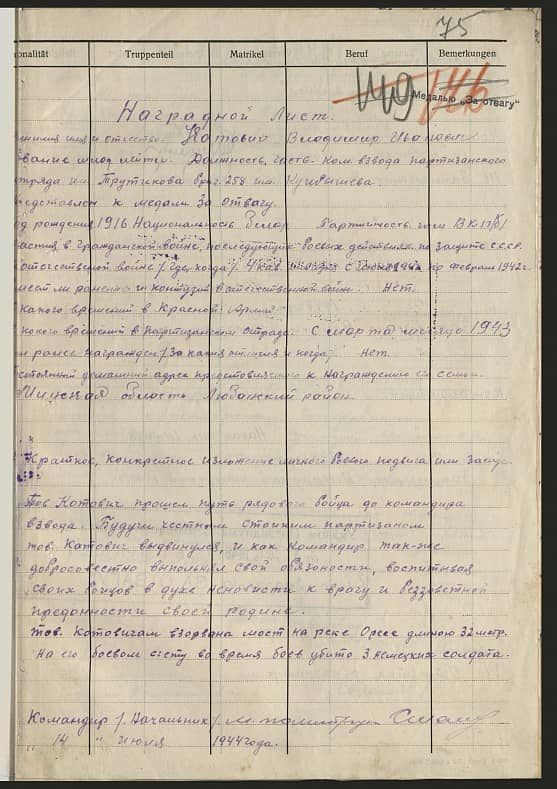 75
onalität Truppenteil Matrikel Beruf Bemerkungen
Медалью „За отвагу"
Наградной Лист.
имя и отчество Катович Владимир Иванович
звание млад. лейт. Должность, часть Ком. взвода партизанского
отряда им. Трутикова бриг. 258 им. Куйбышева
редставлен к медали За Отвагу.
од рождения 1916 Национальность белор. Партийность член ВКП/б/
астия в гражданской войне, последующих боевых действиях по защите СССР
отечественной войне /где, когда/ 4 кав. по Февраль 1942 г.
меет ли ранения и контузии в отечественной войне. Нет.
какого времени в Красной Армии
какого времени в Партизанском Отряде. С марта месяца 1943
м ранее награжден /За какия отличия и когда/ Нет.
стоянный домашний адрес представляемого к награждению семьи.
Минская область Любанский район
Краткое, конкретное изложение личного боевого подвига или заслуг.
Тов Катович прошел путь рядового бойца до командира
взвода. Будучи честным стойким партизаном
тов. Катович выдвинулся, и как командир так-же
добросовестно выполнял свои обязоности, воспитывая
своих бойцов в духе ненависти к врагу и беззаветной
преданности своей родине.
тов. Котовичам взорвана мост на реке Оресе длиною 32 метр.
На его боевом счету во время боев убито 3 немецких солдата.
Командир /Начальник/
14 " июля 1944 года.